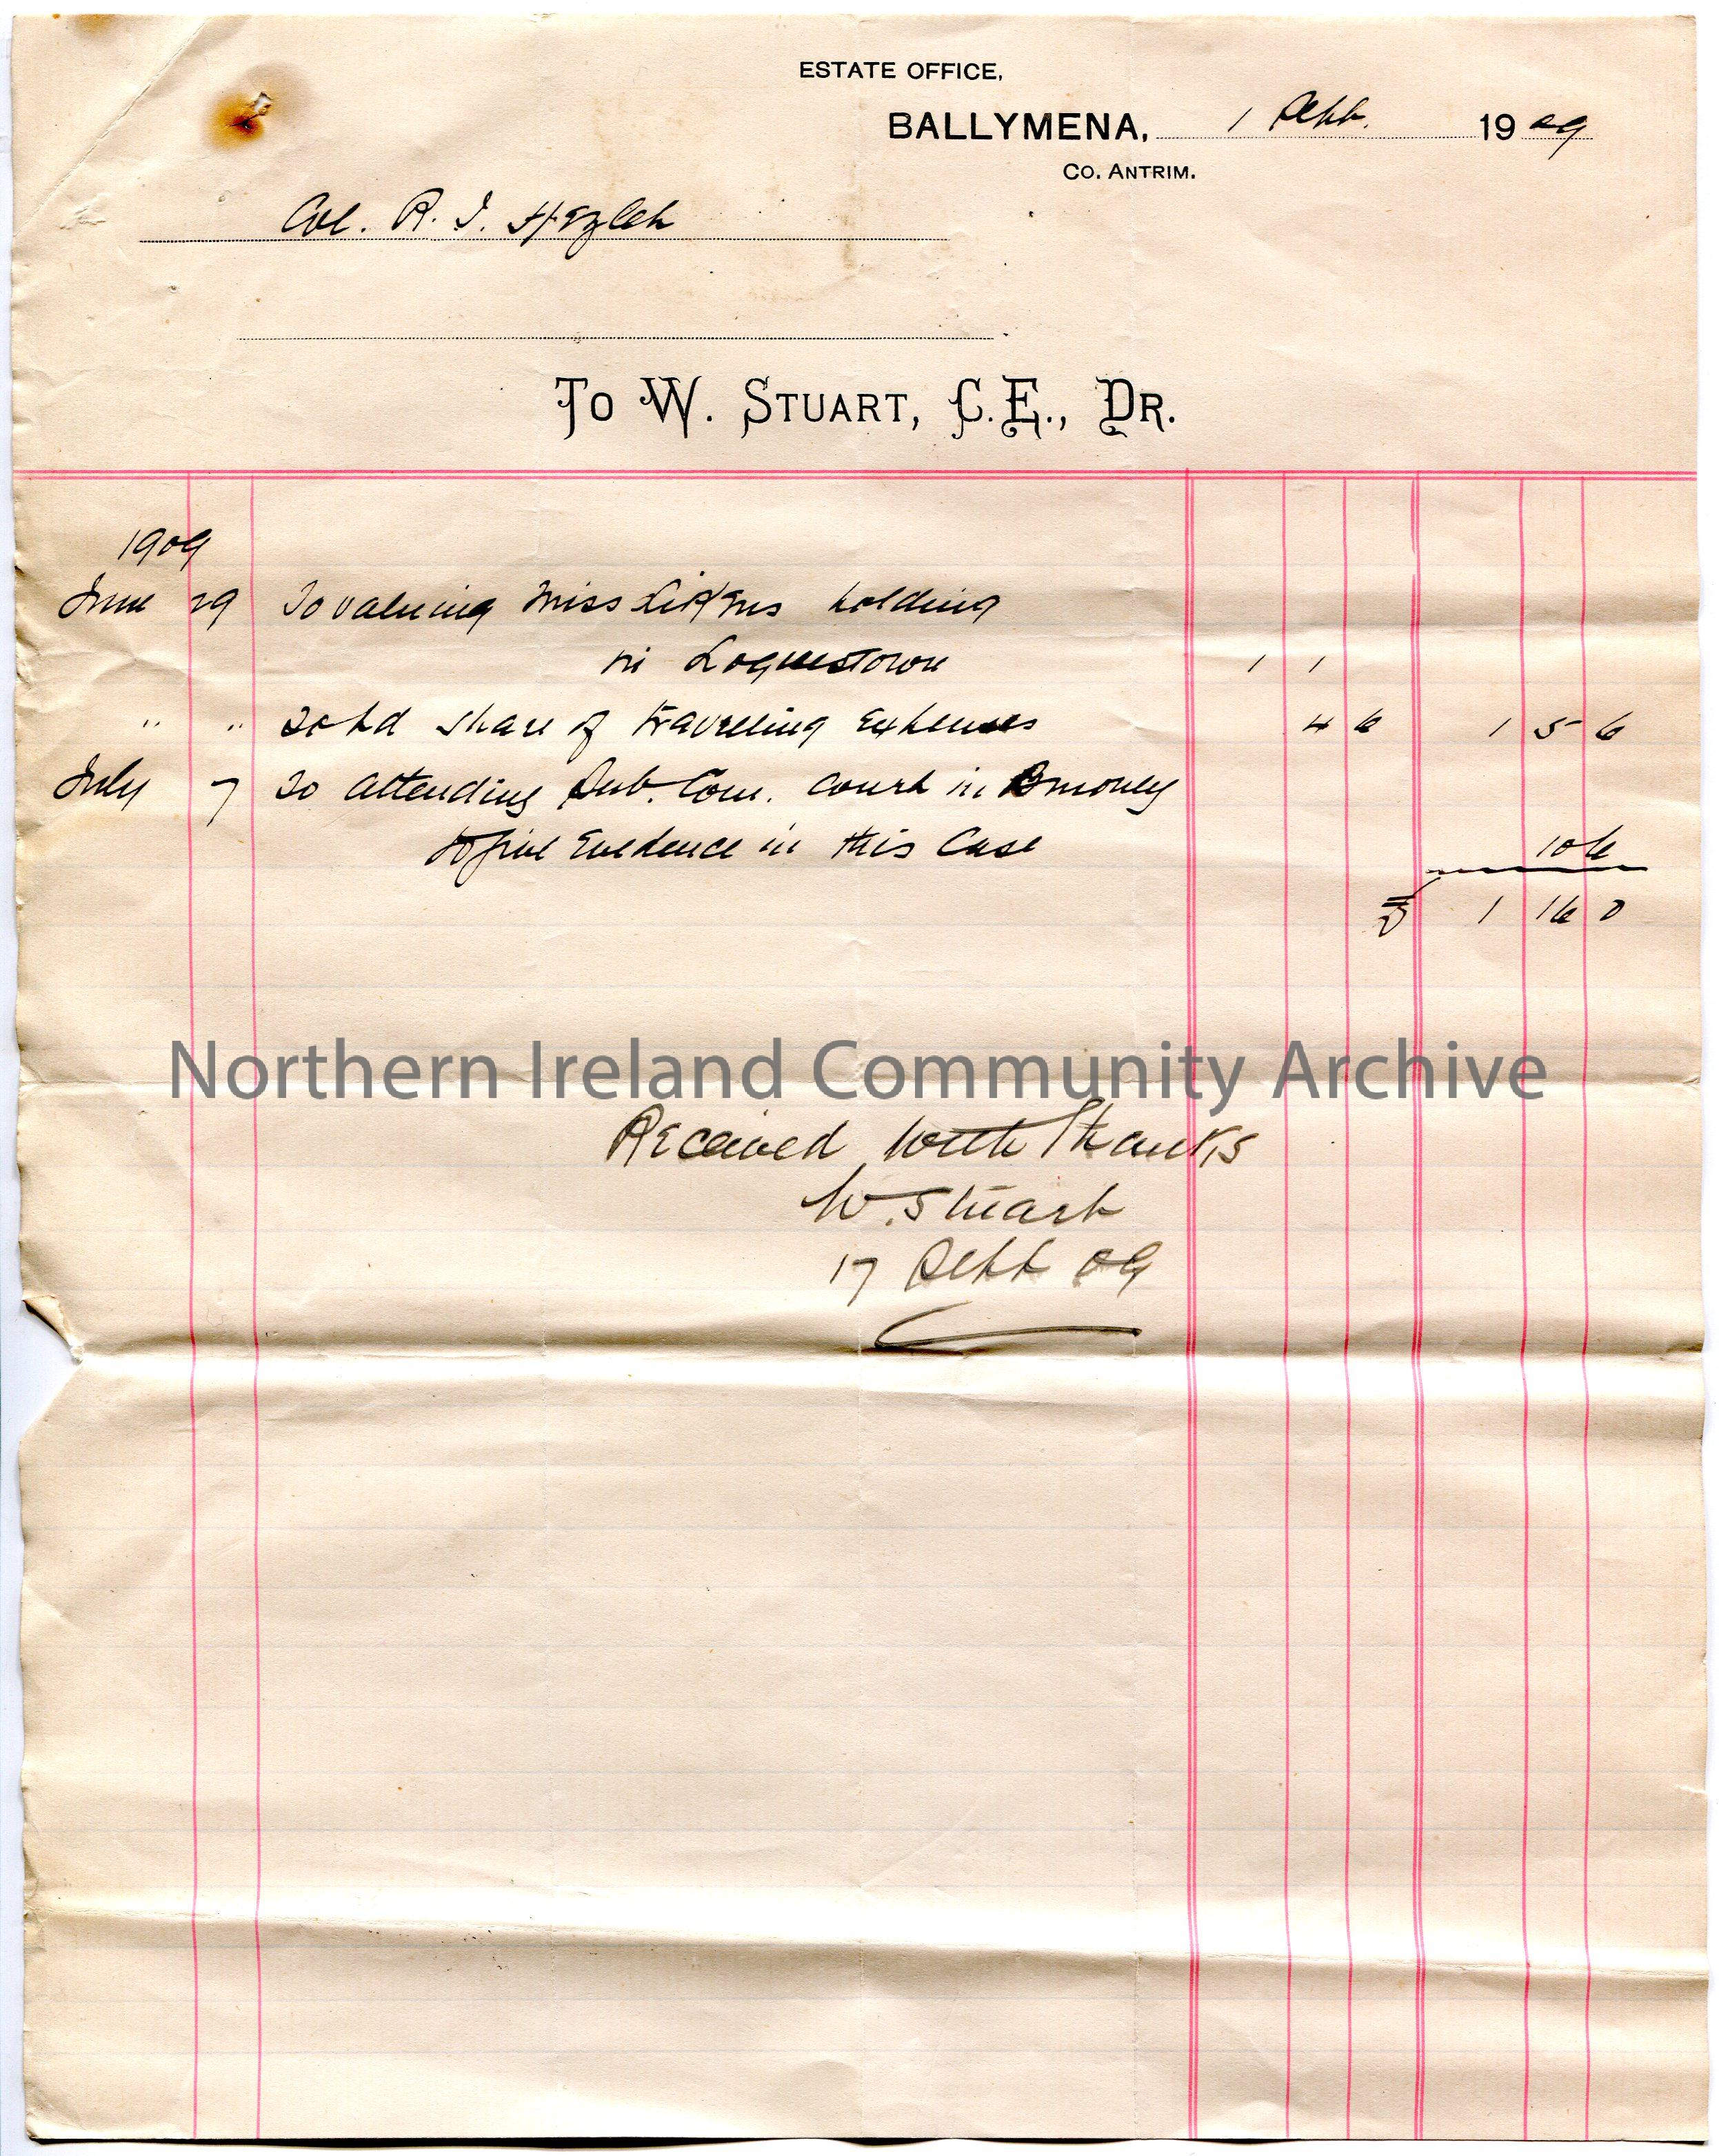 ESTATE OFFICE,
BALLYMENA, 1 Sept. 1909
CO. ANTRIM.
Col. R. J. Hezlet
TO W. STUART, C.E., DR.
1909
June 29 To valuing Miss holding
in Loguestown 1 1
" " To pd share of travelling expenses 4 6 1 5 6
July 7 To attending Sub. Com. Court in Bmoney
to give Evidence in this Case 10 6
£ 1 16 0
Northern Ireland Community Archive
Received with Thanks
W. Stuart
17 Sept 09